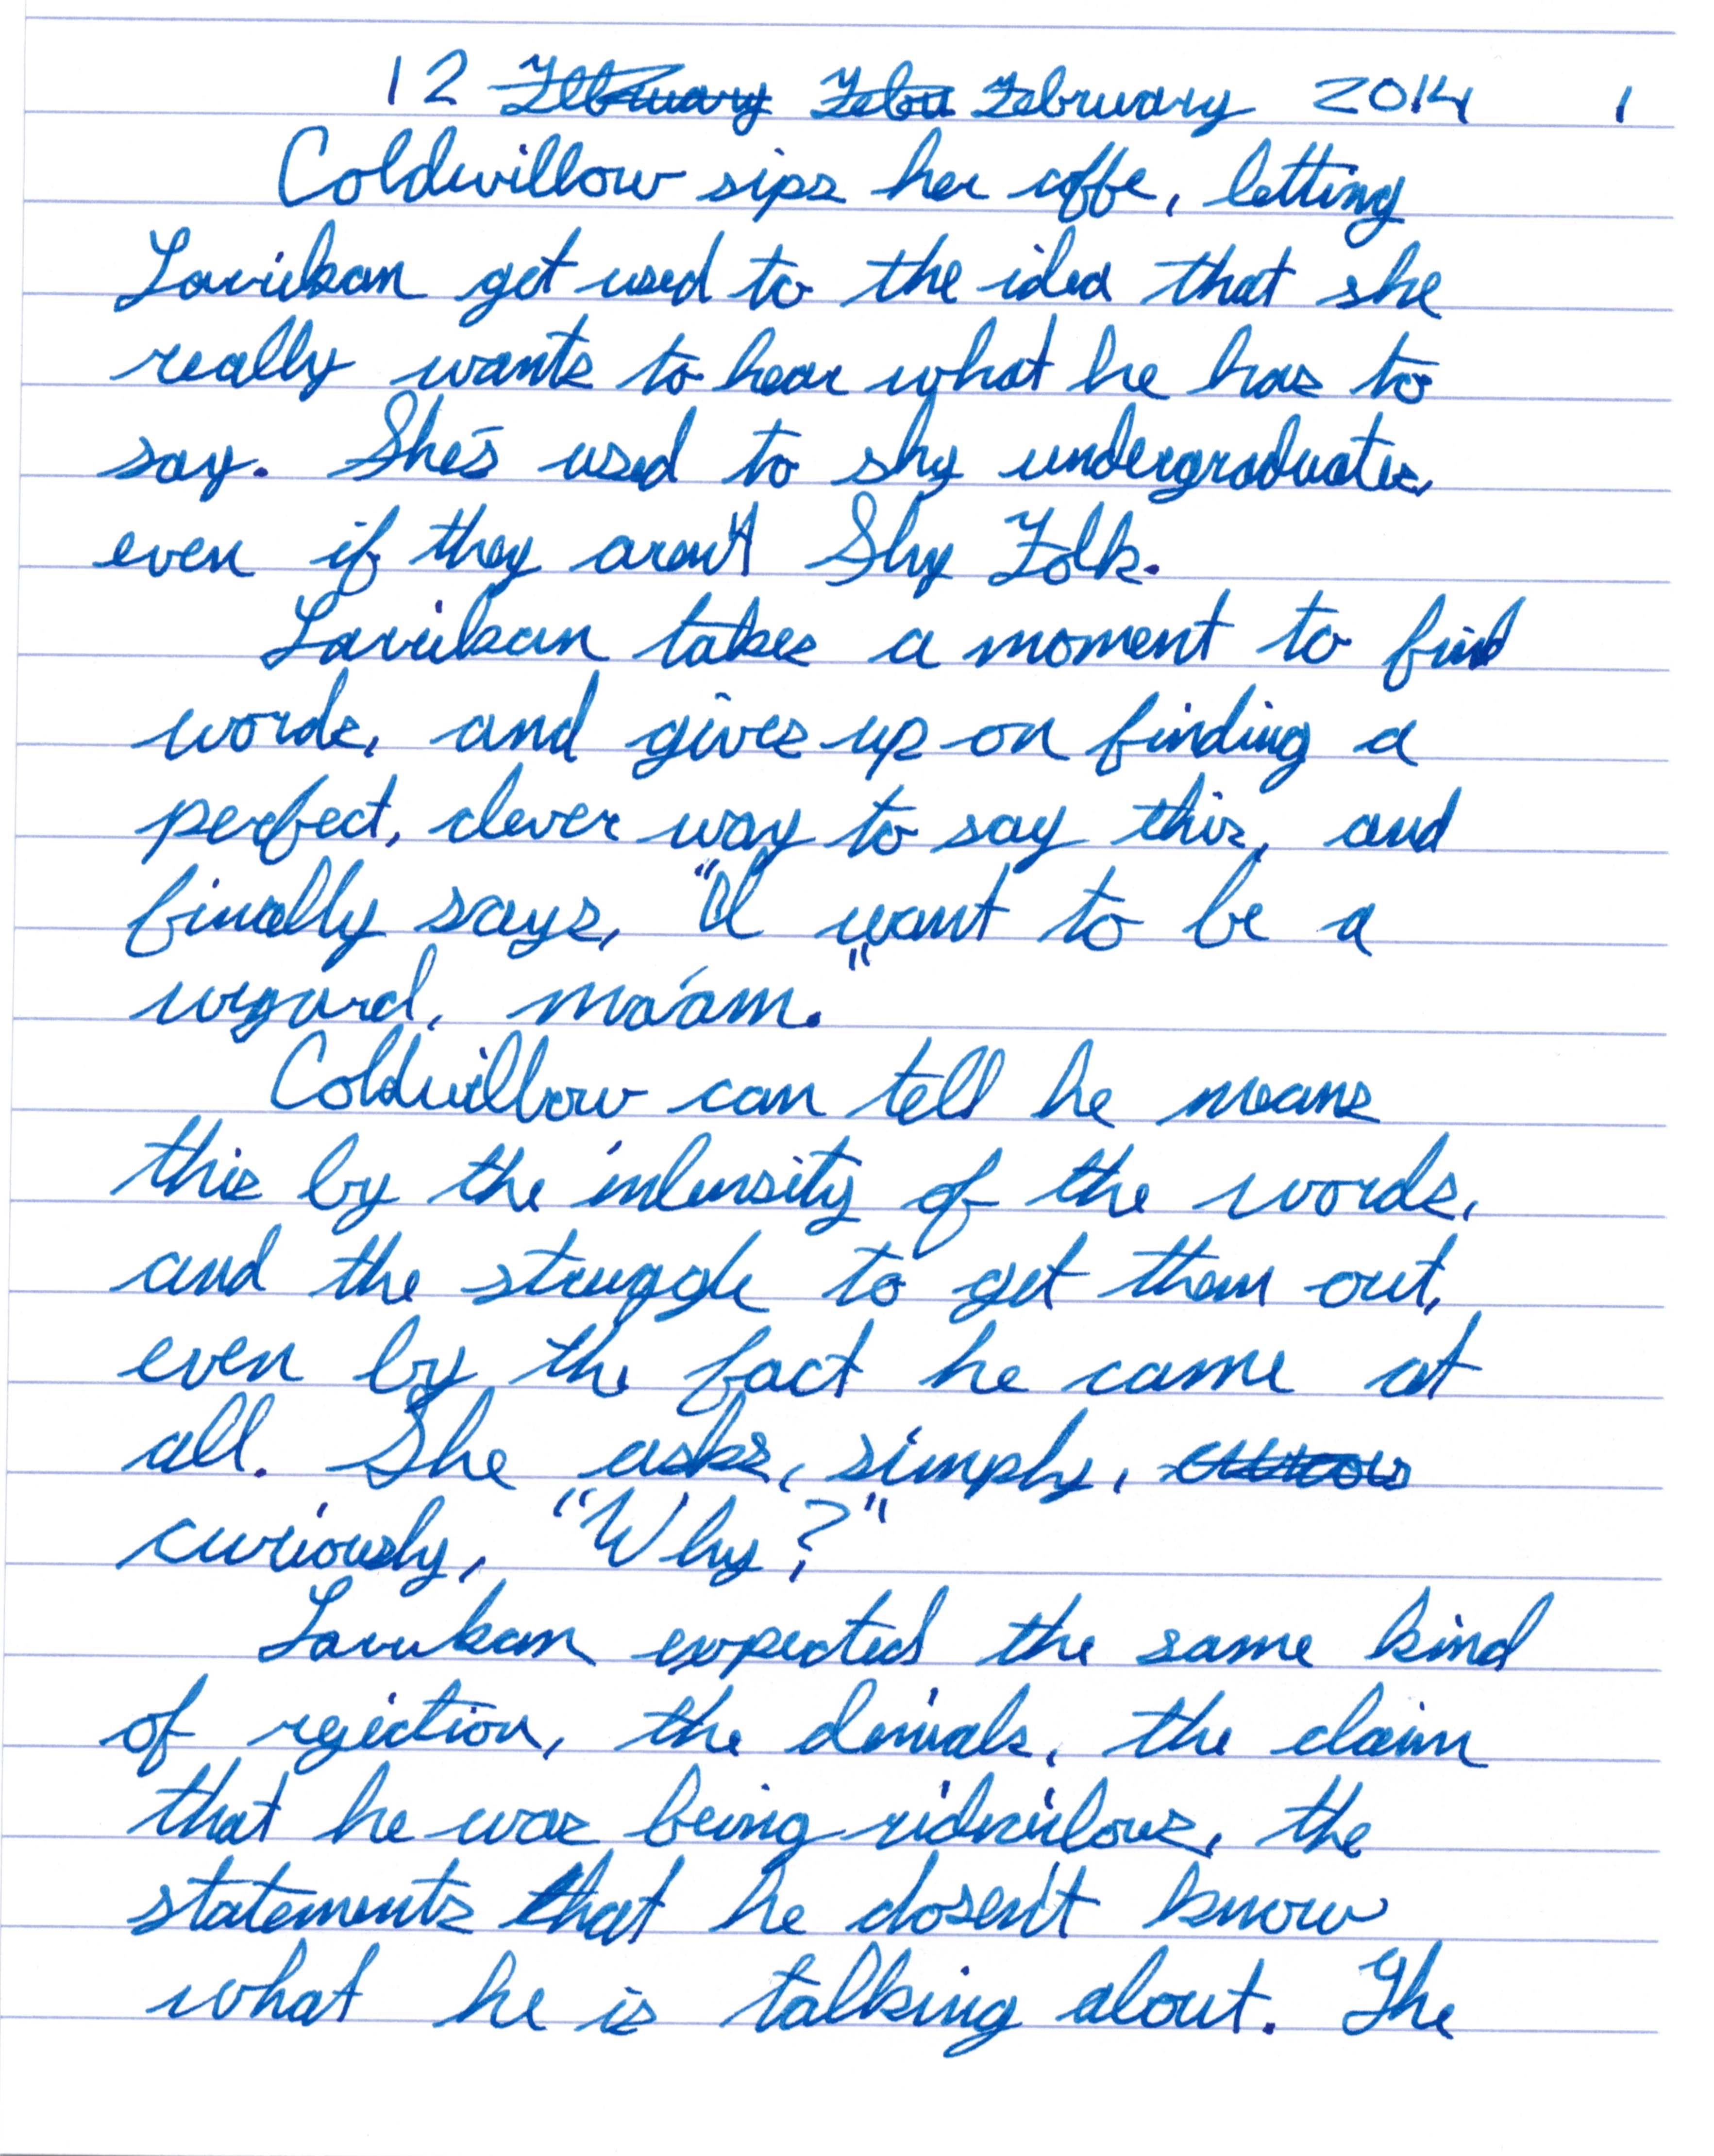 12 February Febu February 2014 1
Coldwillow sips her coffe, letting
Lavikan get used to the idea that she
really wants to hear what he has to
say. She's used to shy undergraduates,
even if they aren't Shy Folk.
Lavikan takes a moment to find
words, and gives up on finding a
perfect, clever way to say this, and
finally says, "I want to be a
wyzard, ma'am."
Coldwillow can tell he means
this by the intensity of the words,
and the struggle to get them out,
even by the fact he came at
all. She asks, simply,
curiously, "Why?"
Lavikan expected the same kind
of rejection, the denials, the claim
that he was being ridiculous, the
statements that he dosen't know
what he is talking about. The